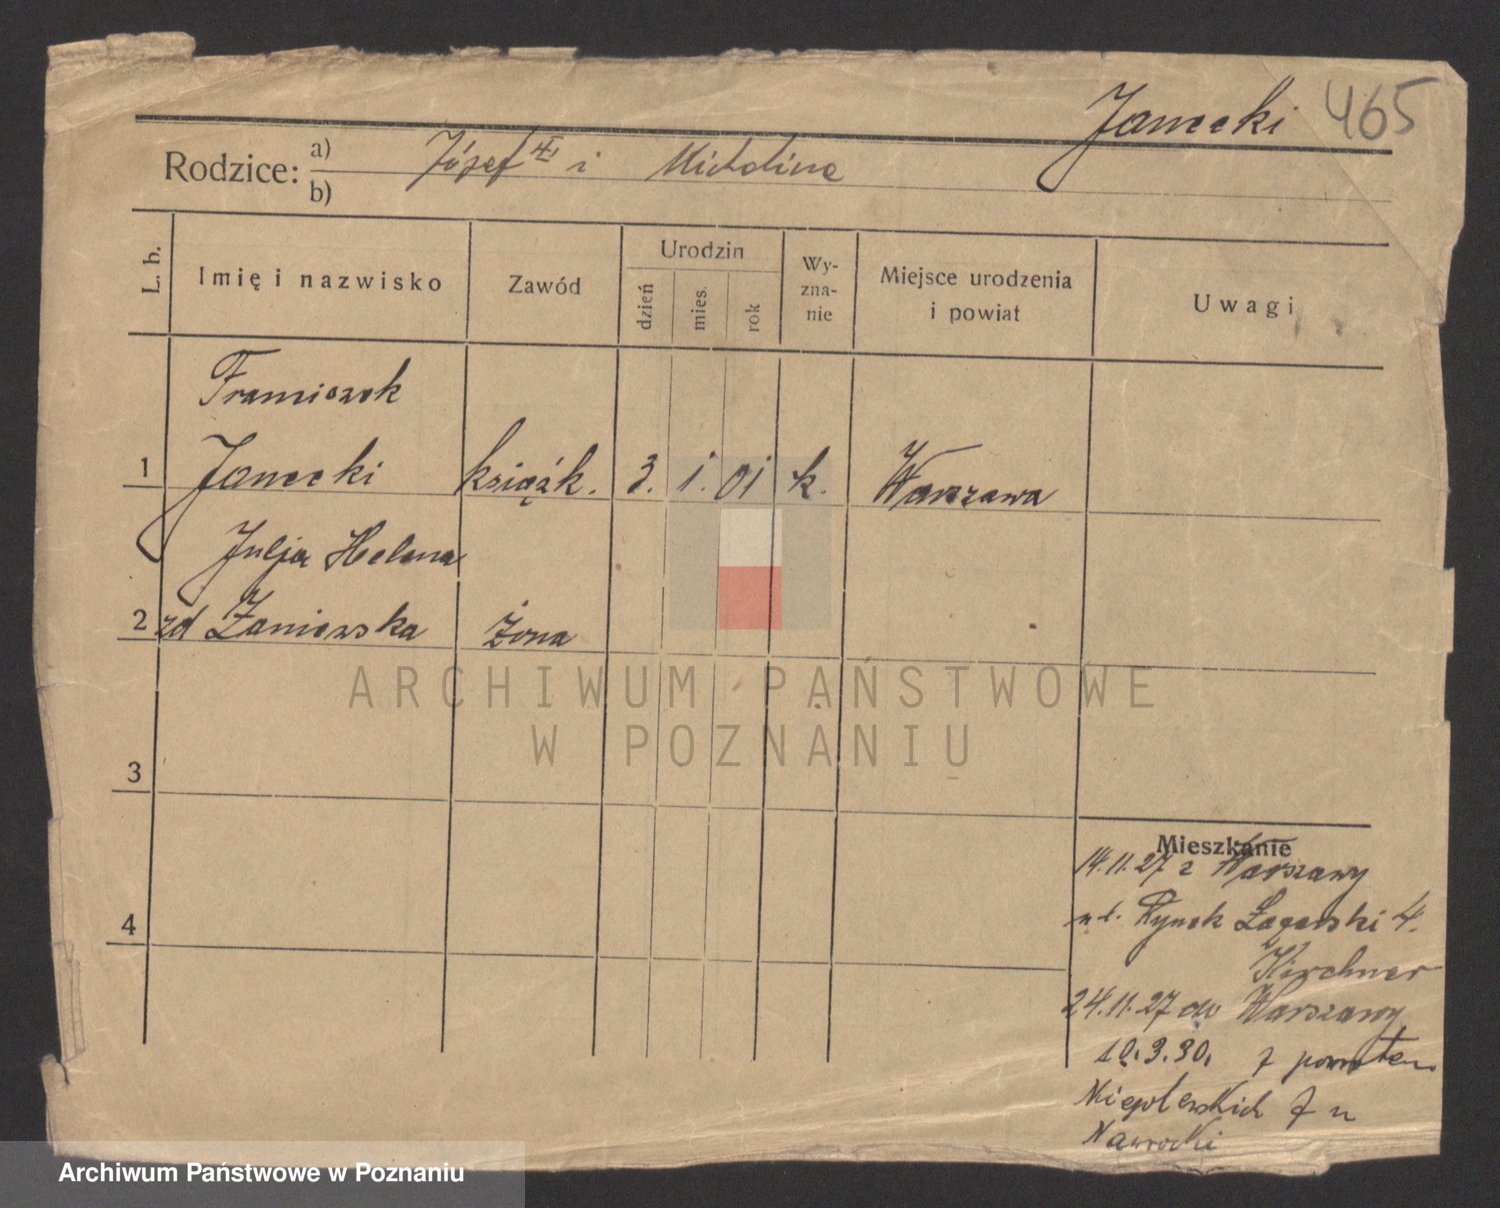 Janecki 465
Rodzice: a) Józef i Michalina
b)
L. b.
Imię i nazwisko
Zawód
Urodzin
dzień
mies.
rok
Wy-
zna-
nie
Miejsce urodzenia
i powiat
Uwagi
Franciszek
1 Janecki książk. 3. 1. 01 k. Warszawa
Julja Helena
2 zd Żaniewska żona
3
4
Mieszkanie
14.11.27 z Warszawy
ul. Rynek Łazarski 4.
Kirchner
24.11.27 do Warszawy
z powrotem
Niegolewskich 7 u
Nawrocki
ARCHIWUM PAŃSTWOWE
W POZNANIU
Archiwum Państwowe w Poznaniu